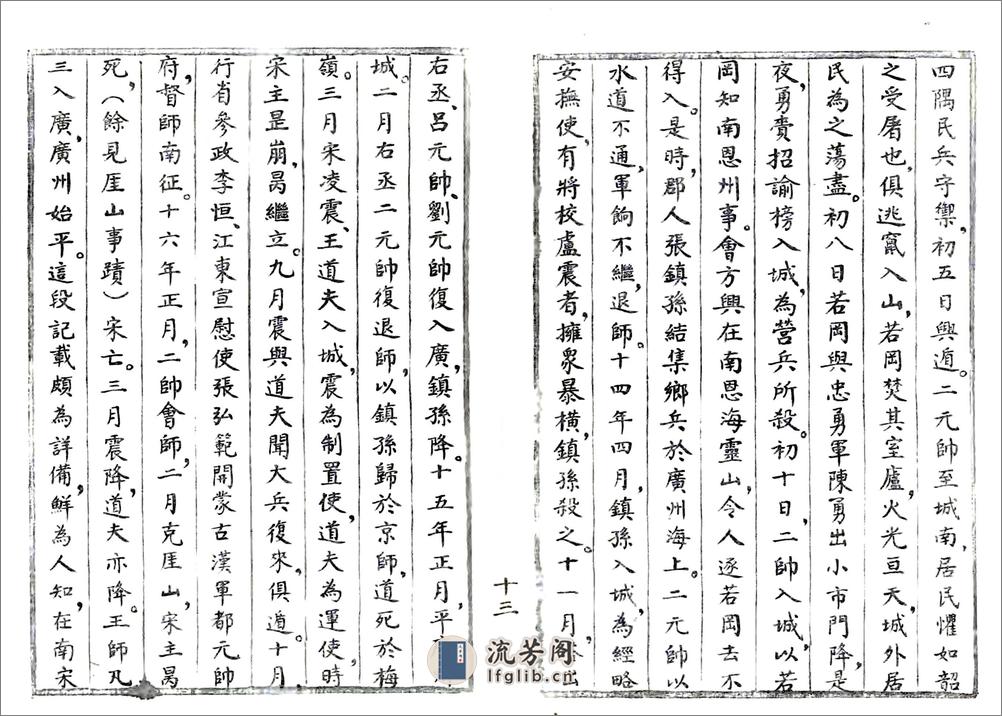 四隅民兵守禦，初五日興遁。二元帥至城南，居民懼如韶
之受屠也，俱逃竄入山，若岡焚其室廬，火光亘天，城外居
民為之蕩盡。初八日若岡與忠勇軍陳勇出小市門降，是
夜，勇賫招諭榜入城，為營兵所殺。初十日，二帥入城，以若
岡知南恩州事。會方興在南恩海靈山，令人逐若岡去不
得入。是時，郡人張鎮孫結集鄉兵於廣州海上。二元帥以
水道不通，軍餉不繼，退師。十四年四月，鎮孫入城，為經略
安撫使，有將校盧震者，擁眾暴橫，鎮孫殺之。十一月，塔出
十三
右丞、呂元帥、劉元帥復入廣，鎮孫降。十五年正月，平
城。二月右丞二元帥復退師，以鎮孫歸於京師，道死於梅
嶺。三月宋凌震、王道夫入城，震為制置使，道夫為運使，時
宋主昰崩，昺繼立。九月震與道夫聞大兵復來，俱遁。十月
行省參政李恒、江東宣慰使張弘範開蒙古漢軍都元帥
府，督師南征。十六年正月，二帥會師，二月克厓山，宋主昺
死，（餘見厓山事蹟）宋亡。三月震降，道夫亦降。王師凡
三入廣，廣州始平。這段記載頗為詳備，鮮為人知，在南宋
流芳阁
lfglib.cn